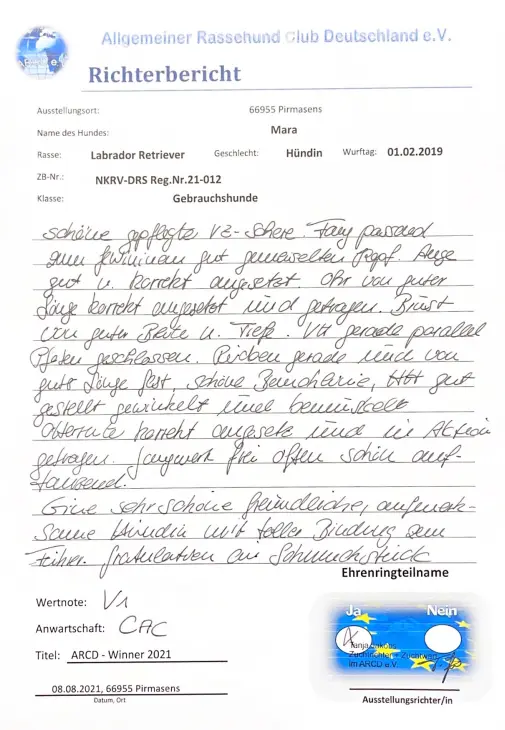 Allgemeiner Rassehund Club Deutschland e.V.
Richterbericht
Ausstellungsort: 66955 Pirmasens
Name des Hundes: Mara
Rasse: Labrador Retriever Geschlecht: Hündin Wurftag: 01.02.2019
ZB-Nr.: NKRV-DRS Reg.Nr.21-012
Klasse: Gebrauchshunde
schöne gepflegte passend
gut gemeiselten Kopf. Auge
gut u. korrekt angesetzt. Ohr von guter
Länge korrekt angesetzt und getragen. Brust
von guter Breite u. Tiefe. VH gerade parallel
Pfoten geschlossen. Rücken gerade und von
guter Länge fest, schöne Bauchlinie, HH gut
gestellt gewinkelt und bemuskelt
korrekt angesetzt und in Aktion
getragen. Gangwerk frei offen schön auf-
Eine sehr schöne freundliche, aufmerk-
same Hündin mit toller Bindung zum
Führer. Gratulation an Schmuckstück
Ehrenringteilname
Wertnote: V1
Ja Nein
Anwartschaft: CAC
Zuchtrichter + Zuchtwart
im ARCD e.V.
Titel: ARCD - Winner 2021
08.08.2021, 66955 Pirmasens
Datum, Ort
Ausstellungsrichter/in